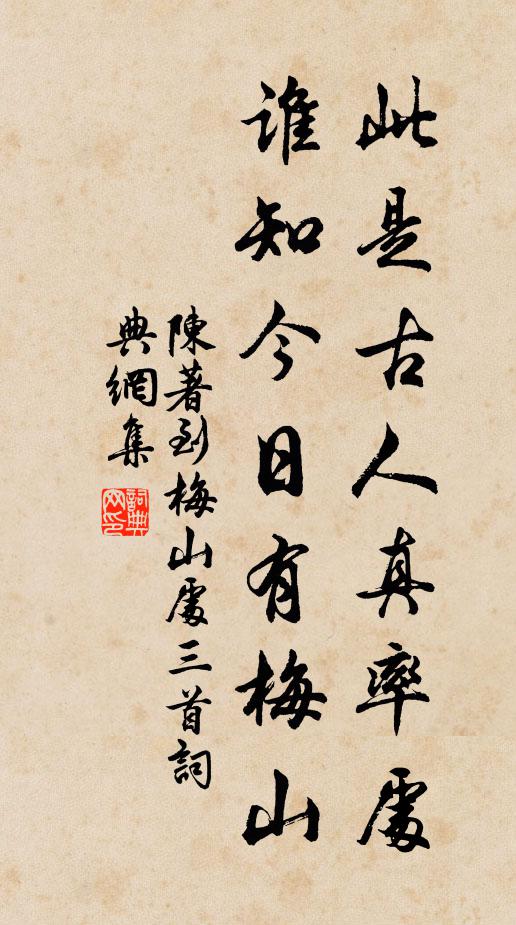 此是古人真率處
誰知今日有梅山
陳著到梅山處三首詞
典網集
詞典網印